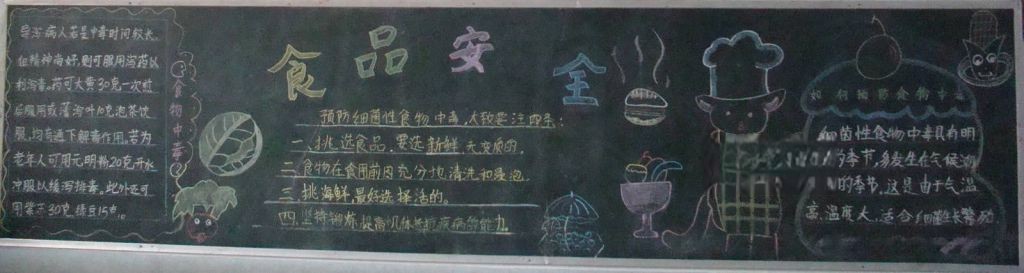 食品安全
导泻 病人若是中毒时间较长,
但精神尚好,则可服用泻药以
利泻毒。药可大黄30克一次煎
后服用或番泻叶10克泡茶饮
服,均有通下解毒作用,若为
老年人可用元明粉20克开水
冲服以缓泻排毒,此外还可
用 30克 绿豆15克。
食物中毒?
预防细菌性食物中毒,大致要注四条:
一、挑选食品,要选新鲜 无变质的,
二、食物在食用前因充分地清洗和浸泡
三、挑海鲜,最好选择活的。
四、坚持锻炼,提高机体 疾病的能力
如何预防食物中毒
细菌性食物中毒具有明
的季节,多发生在气候
的季节,这是由于气温
高,温度大,适合细菌生长繁殖